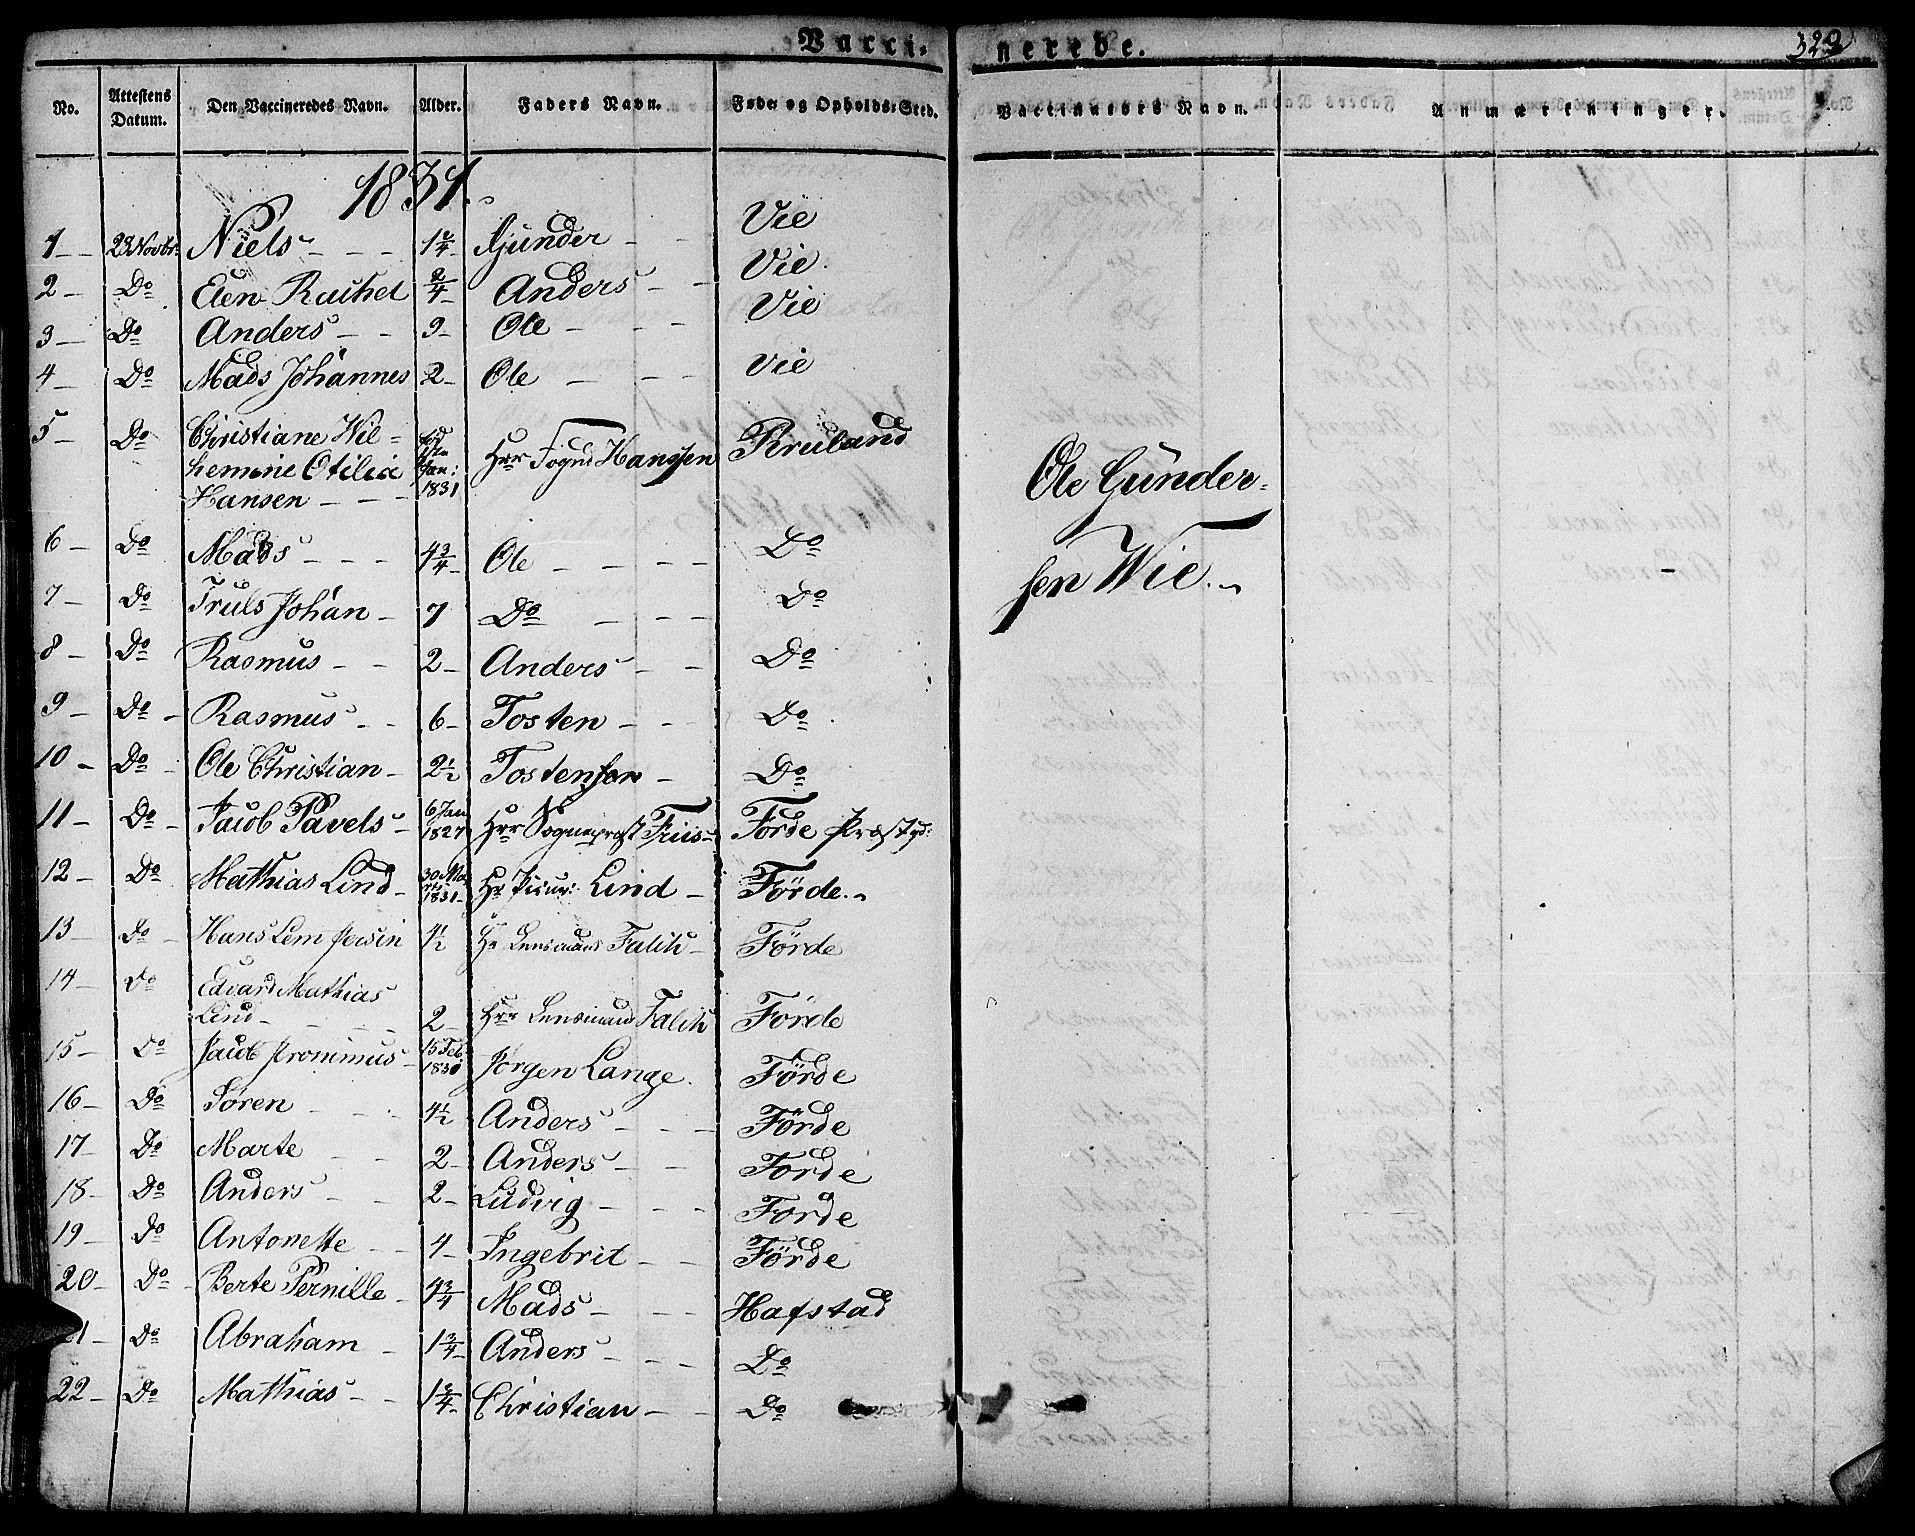 Vacci- nerede. 329
No. Attestens Datum. Den Vaccineredes Navn. Alder. Faders Navn. Føde- og Opholds-Sted. Vaccinateurs Navn. Anmærkninger.
1831.
1 23 Novbr Niels 1 3/4 Gunder Vie
2 Do Elen Rachel 2/4 Anders Vie.
3 Do Anders 9 Ole Vie
4 Do Mads Johannes 2 Ole Vie
5 Do Christiane Wil= fød Hrr Fogd Hanssen Bruland
hemine Otilia Jan:
Hansen 1831
Ole Gunder=
sen Wie.
6 Do Mads 4 3/4 Ole Do
7 Do Truls Johan 7 Do Do
8 Do Rasmus 2 Anders Do
9 Do Rasmus 6 Tosten Do
10 Do Ole Christian 2 1/2 Tosten Do
11 Do Jacob Pavels 6 Jan 1827 Hrr Sogneprest Friis Førde Præstgd:
12 Do Mathias Lind 30 Marts 1831 Hr Lind Førde.
13 Do Hans Lem 4 1/2 Hr Lensmand Falch Førde
14 Do Edvard Mathias
Lind 2 Hrr Lensmand Falch Førde
15 Do Jacob 15 Feb 1830 Jørgen Lange. Førde
16 Do Søren 4 1/2 Anders Førde
17 Do Marte 2 Anders Førde
18 Do Anders 2 Ludvig Førde
19 Do Antonette 4 Ingebrit Førde
20 Do Berte Pernille 4 3/4 Mads Hafstad
21 Do Abraham 1 3/4 Anders Do
22 Do Mathias 1 3/4 Christian Do